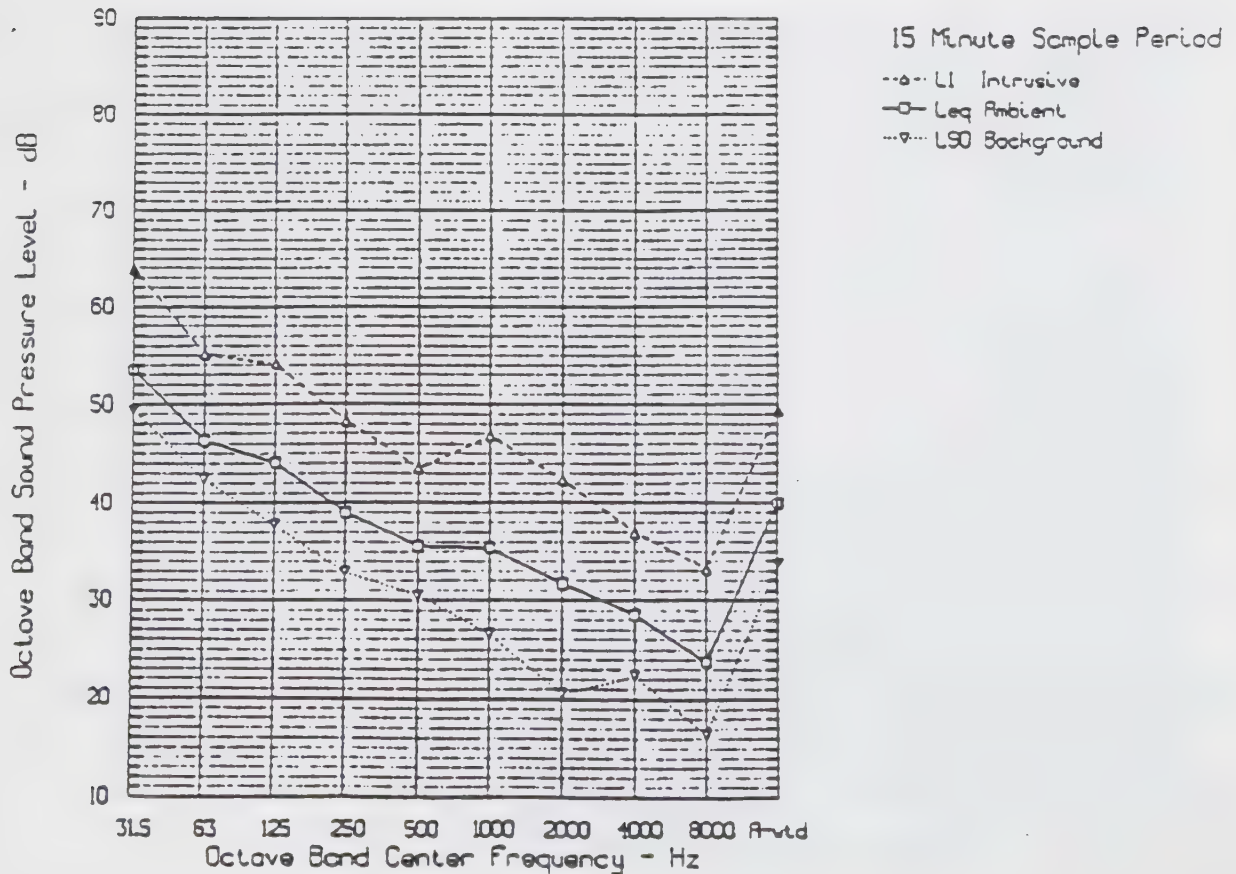 15 Minute Sample Period
L1 Intrusive
Leq Ambient
L90 Background
Octave Band Sound Pressure Level - dB
90
80
70
60
50
40
30
20
10
31.5 63 125 250 500 1000 2000 4000 8000 A-wtd
Octave Band Center Frequency - Hz